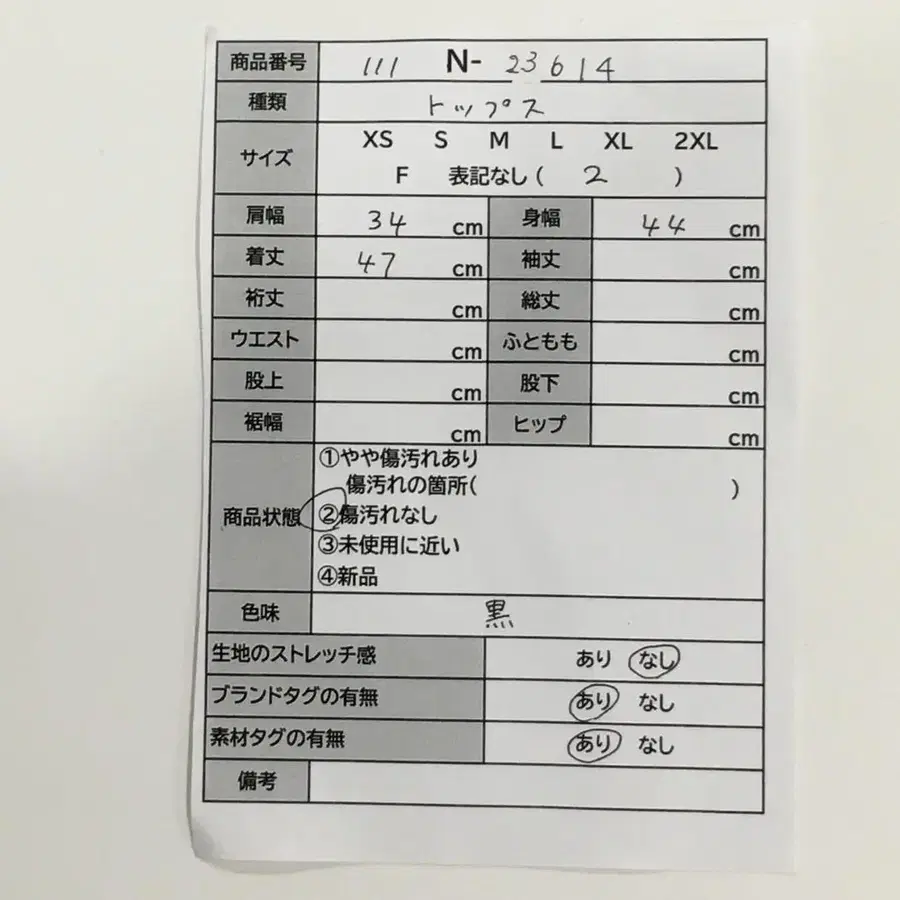 商品番号 111 N- 23614
種類 トップス
サイズ XS S M L XL 2XL
F 表記なし ( 2 )
肩幅 34 cm 身幅 44 cm
着丈 47 cm 袖丈 cm
裄丈 cm 総丈 cm
ウエスト cm ふともも cm
股上 cm 股下 cm
裾幅 cm ヒップ cm
商品状態 ①やや傷汚れあり
傷汚れの箇所( )
②傷汚れなし
③未使用に近い
④新品
色味 黒
生地のストレッチ感 あり なし
ブランドタグの有無 あり なし
素材タグの有無 あり なし
備考